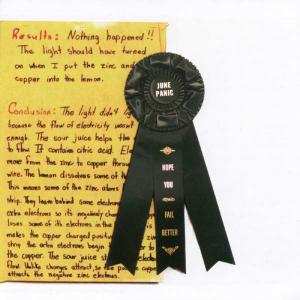 Results: Nothing happened!!
The light should have turned
on when I put the zinc and
copper into the lemon.
Conclusion: The light didn't lig
because the flow of electricity wasnt
enough. The sour juice helps the
to flow It contains citric acid. Ele
move from the zinc to copper throu
wire. The lemon dissolves some of th
This means some of the zinc atoms
strip. They leave behind some electrons
extra electrons so its negatively char
loses some of its electrons in the
makes the copper charged positive
strip the extra electrons begin to
the copper. The sour juice
flow. Unlike charges attract, so the
attracts the negative zinc electrons.
JUNE
PANIC
HOPE
YOU
FAIL
BETTER